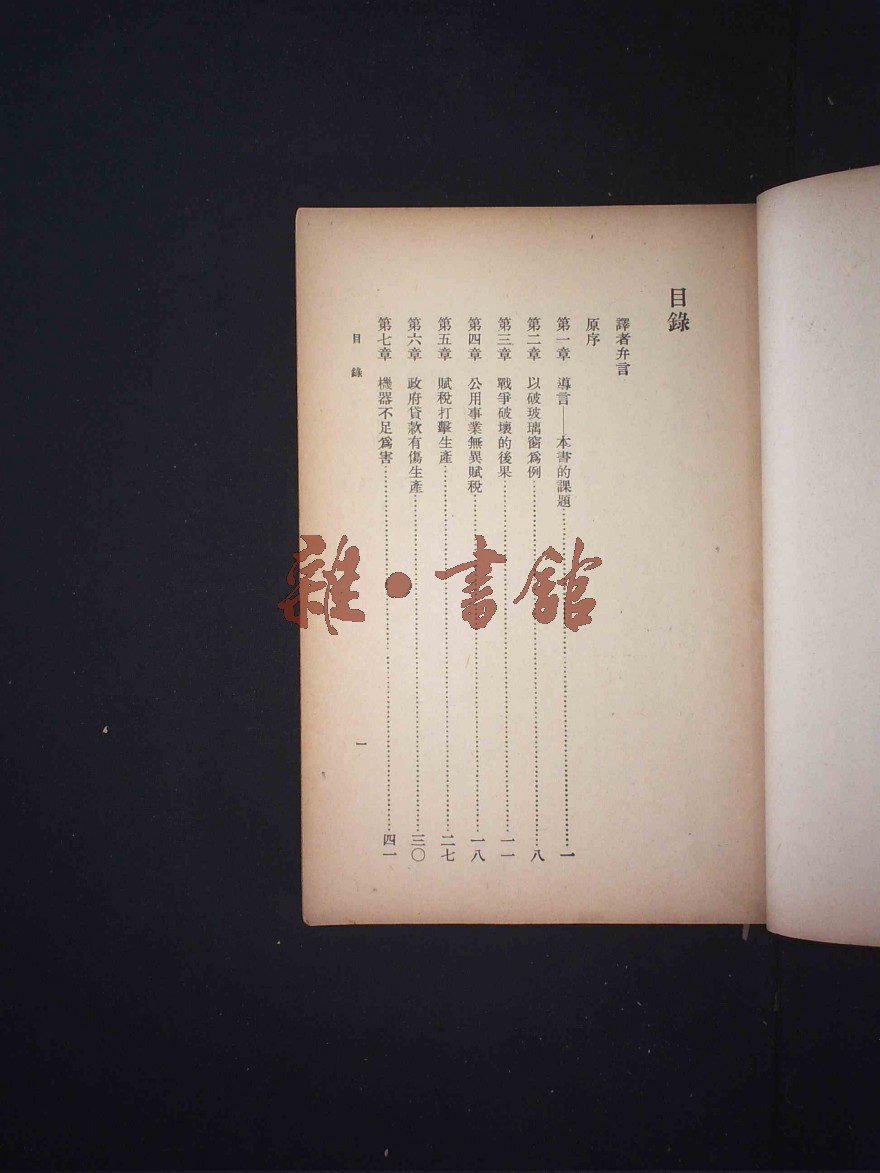 目錄
譯者弁言
原序
第一章 導言——本書的課題…………一
第二章 以破玻璃窗爲例…………八
第三章 戰爭破壞的後果…………一一
第四章 公用事業無異賦稅…………一八
第五章 賦稅打擊生產…………二七
第六章 政府貸款有傷生產…………三〇
第七章 機器不足爲害…………四一
目錄 一
雜·書館